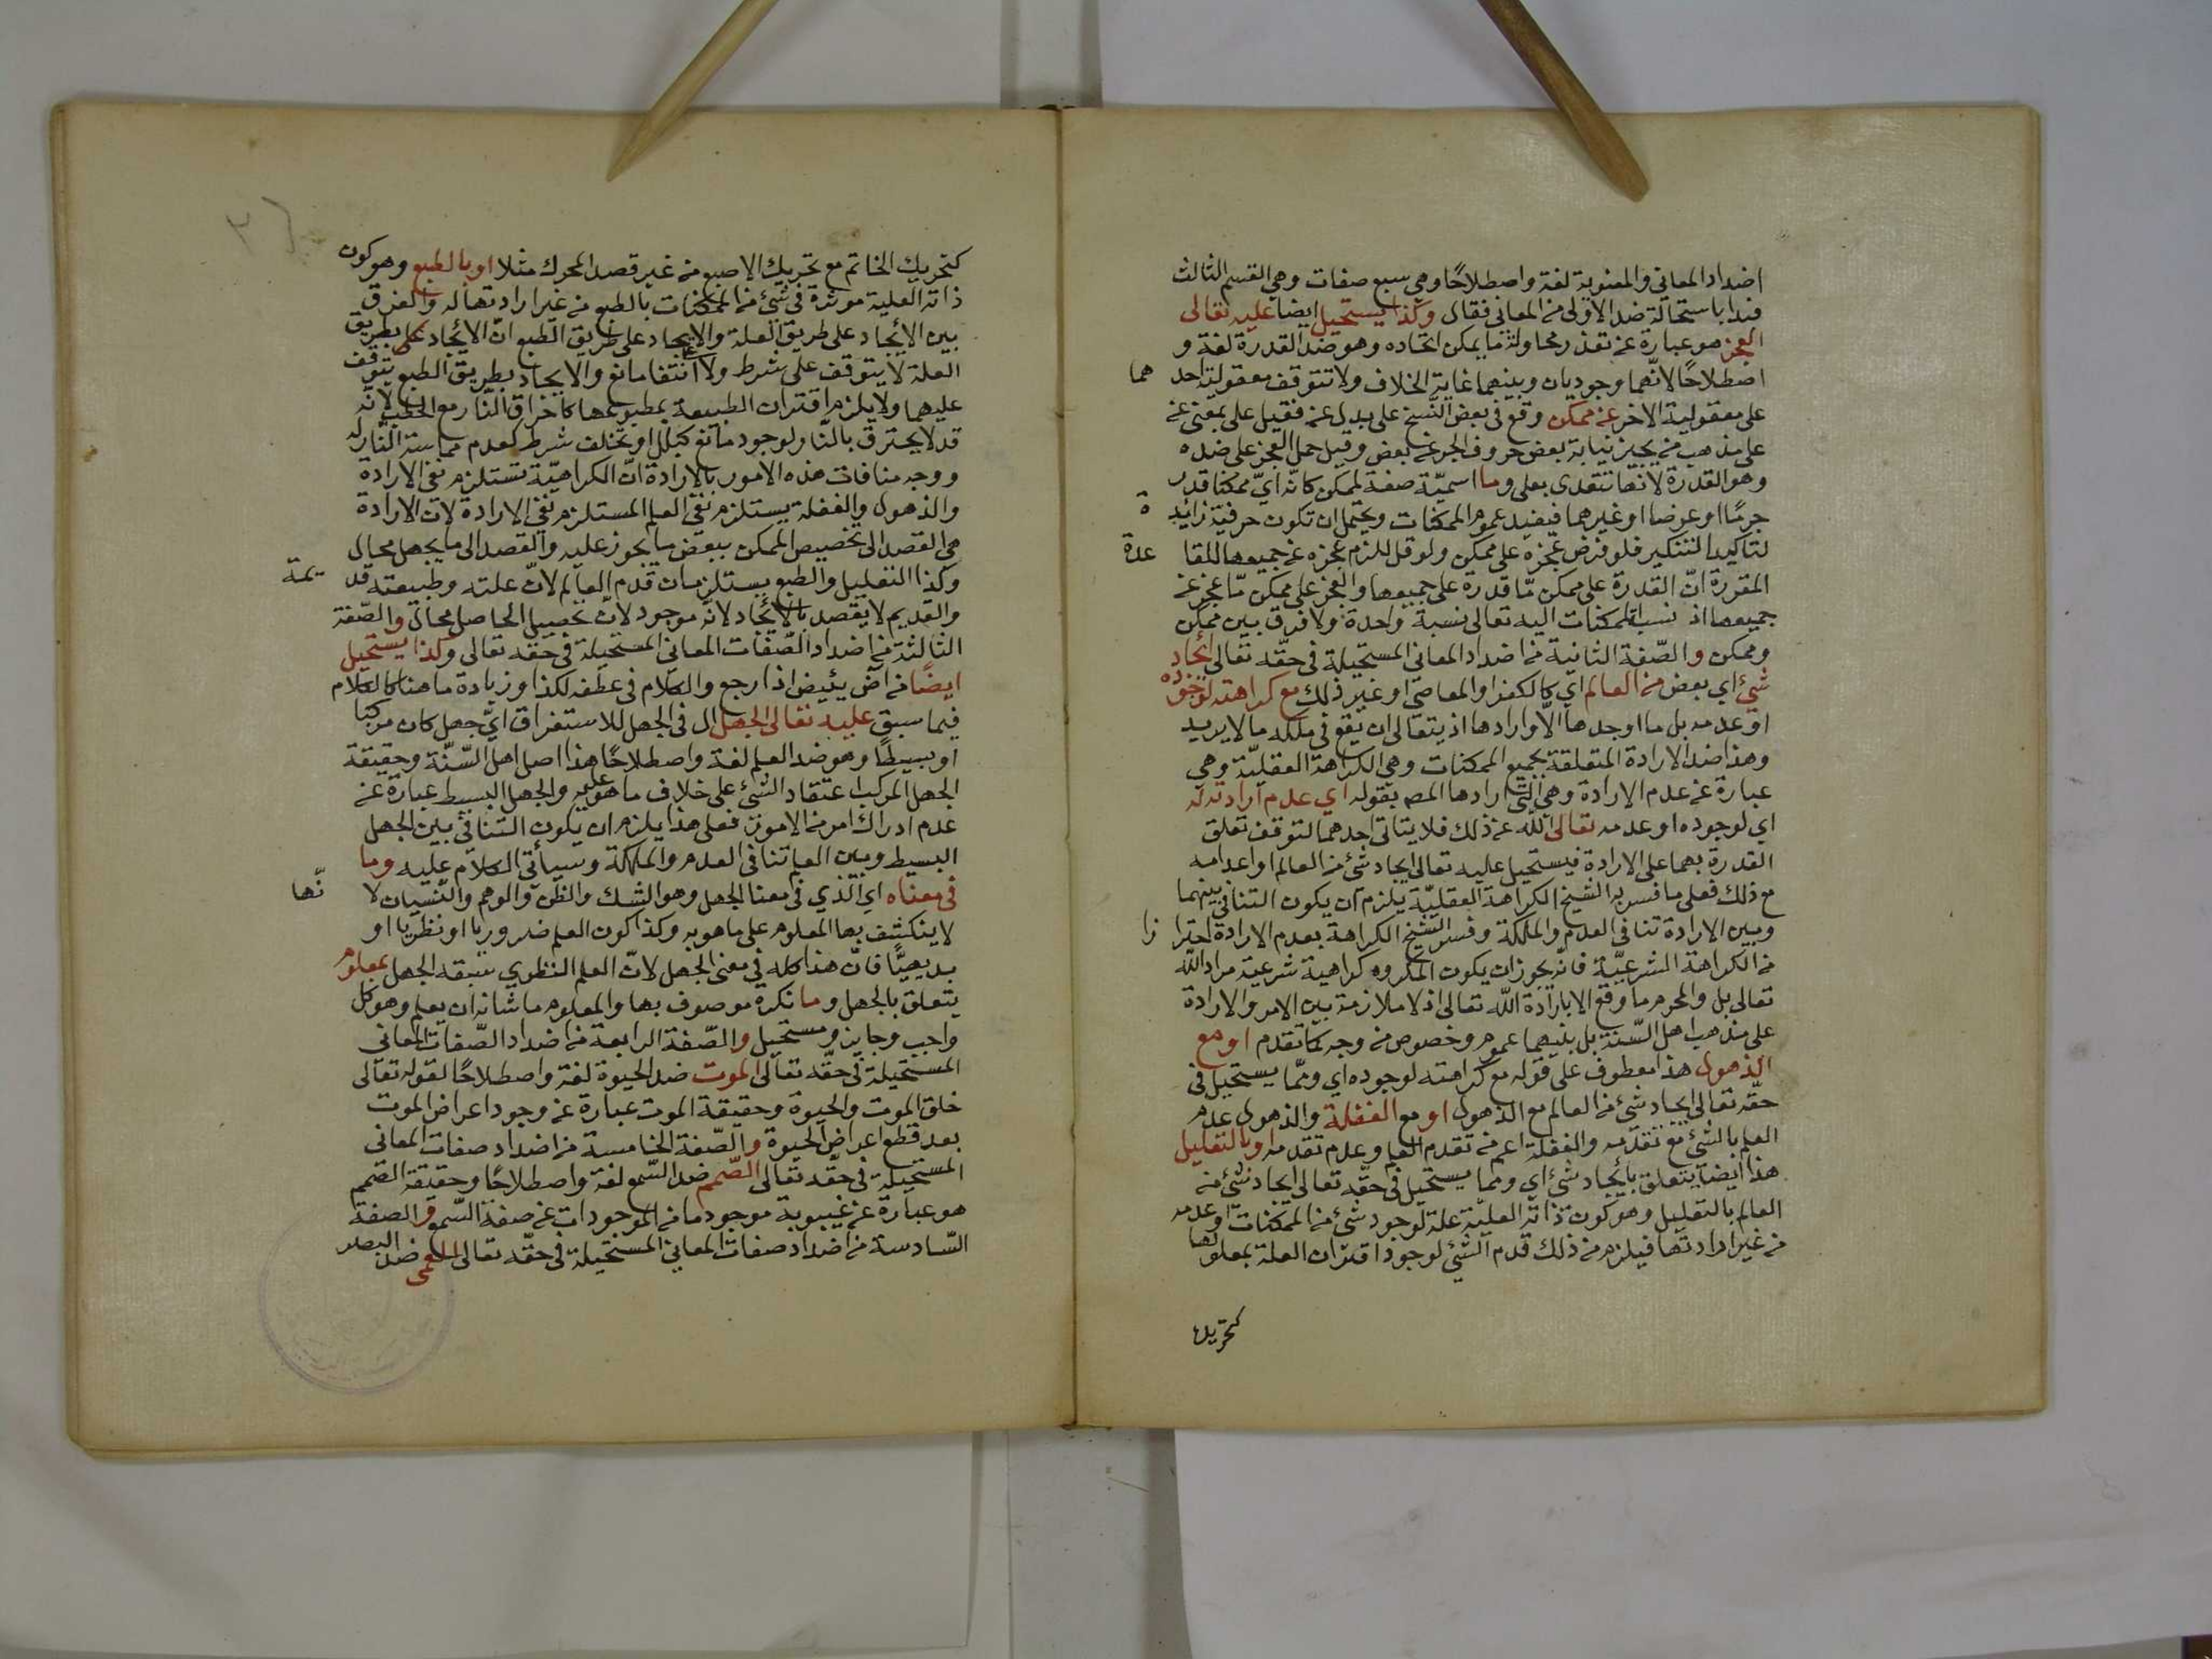 اضداد المعاني والمعنوية لغة واصطلاحًا وهي سبع صفات وهي القسم الثالث
فبدا باستحالة ضد الاولى من المعاني فقال وكذا يستحيل ايضا عليه تعالى
العجز هو عبارة عن تعذر محاولة ما يمكن اتحاده وهو ضد القدرة لغة و
اصطلاحًا لانّهما وجوديان وبينهما غاية الخلاف ولا تتوقف معقولية احد هما
على معقولية الاخر عن ممكن وقع في بعض النّسخ على بدل عن فقيل على بمعنى عن
على مذهب من يجيز نيابة بعض حروف الجر عن بعض وقيل حمل العجز على ضده
وهو القدرة لانها تتعدى بعلى وما اسميّة صفة لممكن كانّه ايّ ممكنا قدر
جرمًا او عرضا او غيرهما فيفيد عموم الممكنات ويحتمل ان تكون حرفية زائد ة
لتاكيد التنكير فلو فرض عجزه على ممكن ولو قل للزم عجزه عن جميعها للقا عدة
المقررة انّ القدرة على ممكن مّا قدرة على جميعها والعجز على ممكن مّا عجز عن
جميعها اذ نسبة الممكنات اليه تعالى نسبة واحدة ولا فرق بين ممكن
وممكن والصّفة الثانية من اضداد المعاني المستحيلة في حقّه تعالى ايجاد
شيئ اي بعض من العالم اي كالكفر والمعاصي او غير ذلك مع كراهته لوجوده
او عدمه بل ما اوجدها الّا وارادها اذ يتعالى ان يقع في ملكه مالا يريد
وهذا ضد الارادة المتعلقة بجميع الممكنات وهي الكراهة العقليّة وهي
عبارة عن عدم الارادة وهي التي ارادها المصـ بقوله اي عدم ارادته له
اي لوجوده او عدمه تعالى اللّه عن ذلك فلا يتاتى احدهما لتوقف تعلق
القدرة بهما على الارادة فيستحيل عليه تعالى ايجاد شئ من العالم او اعدامه
مع ذلك فعلى ما فسر به الشيخ الكراهة العقليّة يلزم ان يكون التنافي بينهما
وبين الارادة تنافي العدم والملكة وفسر الشيخ الكراهة بعدم الارادة احترا زا
من الكراهة الشرعيّة فانّه يجوز ان يكون المكروه كراهية شرعية مراد اللّه
تعالى بل والمحرم ما وقع الا بارادة اللّه تعالى اذ لا ملازمة بين الامر والارادة
على مذهب اهل السّنة بل بينهما عموم وخصوص من وجه كما تقدم او مع
الذهول هذا معطوف على قوله مع كراهته لوجوده اي وممّا يستحيل في
حقّه تعالى ايجاد شئ من العالم مع الذهول او مع الغفلة والذهول عدم
العلم بالشئ مع تقدّمه والغفلة اعم من تقدم العلم وعدم تقدمه او بالتعليل
هذا ايضا يتعلق بايجاد شئ اي ومما يستحيل في حقّه تعالى ايجاد شئ من
العالم بالتعليل وهو كون ذاته العليّة علة لوجود شئ من الممكنات او عدمه
من غير ارادتها فيلزم من ذلك قدم الشئ لوجود اقتران العلة بمعلولها
كتحريك
كتحريك الخاتم مع تحريك الاصبع من غير قصد المحرك مثلا او بالطبع وهو كون
ذاته العلية موثرة في شئ من الممكنات بالطبع من غير ارادتها له والفرق
بين الايجاد على طريق العلة والايجاد على طريق الطبع انّ الايجاد على بطريق
العلة لا يتوقف على شرط ولا انتفا مانع والايجاد بطريق الطبع يتوقف
عليهما ولا يلزم اقتران الطبيعة بمطبوعها كاحراق النّار مع الحطب لانّه
قد لا يحترق بالنّار لوجود مانع كبلل او تخلف شرط كعدم مماسة النّار له
ووجه منافات هذه الامور بالارادة انّ الكراهيّة تستلزم نفي الارادة
والذهول والغفلة يستلزم نفي العلم المستلزم نفي الارادة لان الارادة
هي القصد الى تخصيص الممكن ببعض ما يجوز عليه والقصد الى ما يجهل محال
وكذا التعليل والطبع يستلزمان قدم العالم لانّ علته وطبيعته قد يمة
والقديم لا يقصد بالايجاد لانّه موجود لانّ تحصيل الحاصل محال والصّفة
الثالثة من اضداد الصّفات المعاني المستحيلة في حقه تعالى وكذا يستحيل
ايضًا من آض يئيض اذا رجع والكلام في عطفه لكذا وزيادة ما هنا كالكلام
فيما سبق عليه تعالى الجهل ال في الجهل للاستغراق ايّ جهل كان مركبا
او بسيطًا وهو ضد العلم لغة واصطلاحًا هذا اصل اهل السّنّة وحقيقة
الجهل المركب اعتقاد الشئ على خلاف ما هو عليه والجهل البسيط عبارة عن
عدم ادراك امر من الامور فعلى هذا يلزم ان يكون التنافي بين الجهل
البسيط وبين العلم تنافي العدم والملكة وسيأتي الكلام عليه وما
في معناه اي الّذي في معنا الجهل وهو الشك والظن والوهم والنسيان لا نّها
لا ينكشف بها المعلوم على ما هو به وكذا كون العلم ضروريا او نظريا او
بديهيًّا فانّ هذا كله في معنى الجهل لانّ العلم النظري سبقه الجهل بمعلوم
يتعلق بالجهل وما نكرة موصوف بها والمعلوم ما شانه ان يعلم وهو كل
واجب وجايز ومستحيل والصّفة الرابعة من اضداد الصّفات المعاني
المستحيلة في حقّه تعالى الموت ضد الحيوة لغة واصطلاحًا لقوله تعالى
خلق الموت والحيوة وحقيقة الموت عبارة عن وجود اعراض الموت
بعد قطع اعراض الحيوة والصّفة الخامسة من اضداد صفات المعاني
المستحيلة في حقّه تعالى الصّمم ضد السّمع لغة واصطلاحًا وحقيقة الصّمم
هو عبارة عن غيبوبة موجود ما من الموجودات عن صفة السّمع والصفة
السّادسة من اضداد صفات المعاني المستحيلة في حقّه تعالى العمى ضد البصر